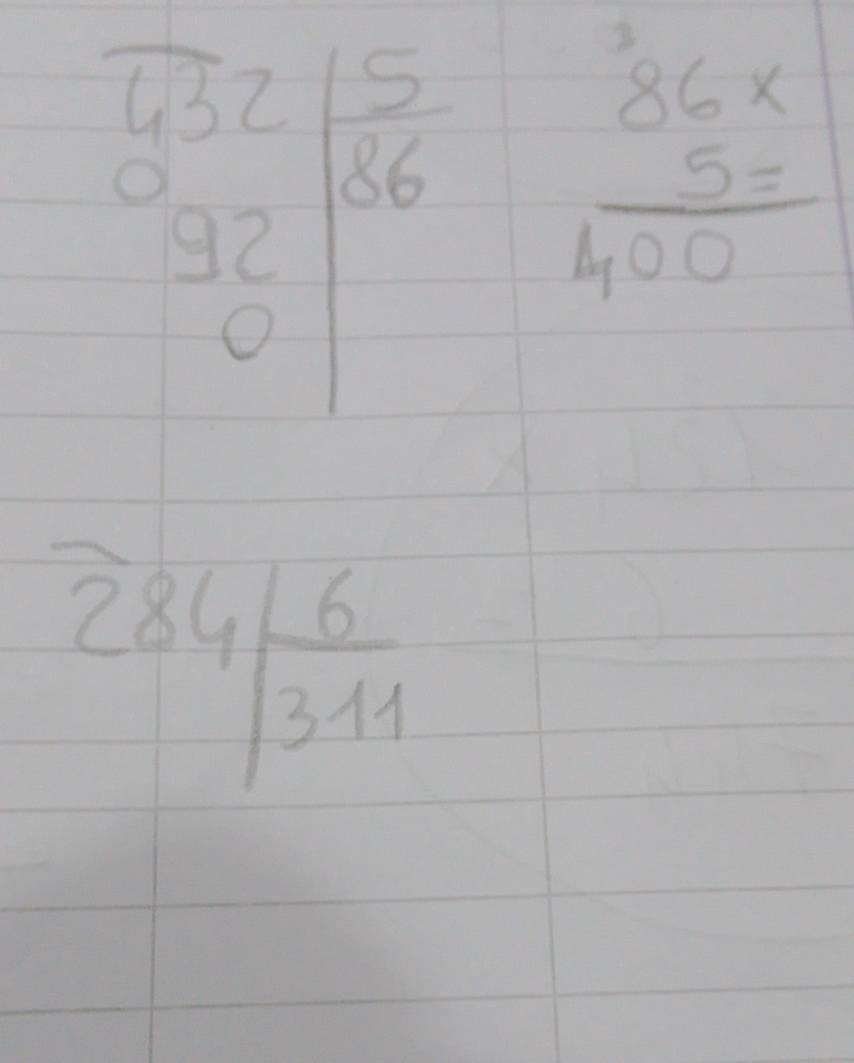 432 5
0 86
92
0
3
86 x
5 =
400
284 6
311